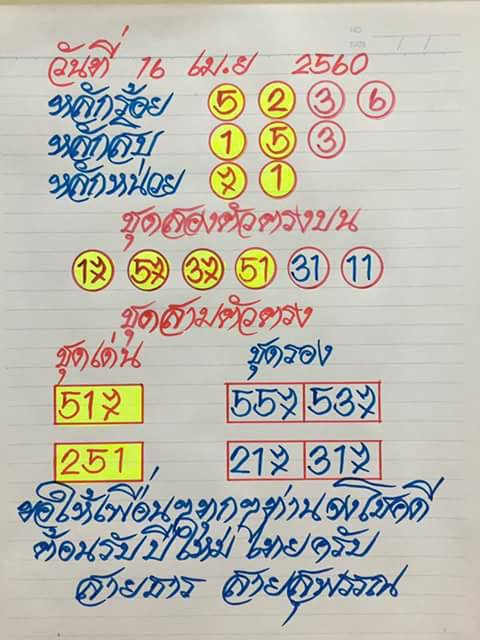 NO
DATE / /
วันที่ 16 เม.ย 2560
หลักร้อย 5 2 3 6
หลักสิบ 1 5 3
หลักหน่วย 7 1
ชุดสองตัวตรงบน
17 57 37 51 31 11
ชุดสามตัวตรง
ชุดเด่น ชุดรอง
517 557 537
251 217 317
ขอให้เพื่อนๆทุกๆท่านจงโชคดี
ต้อนรับปีใหม่ ไทยครับ
สายธาร สายสุพรรณ